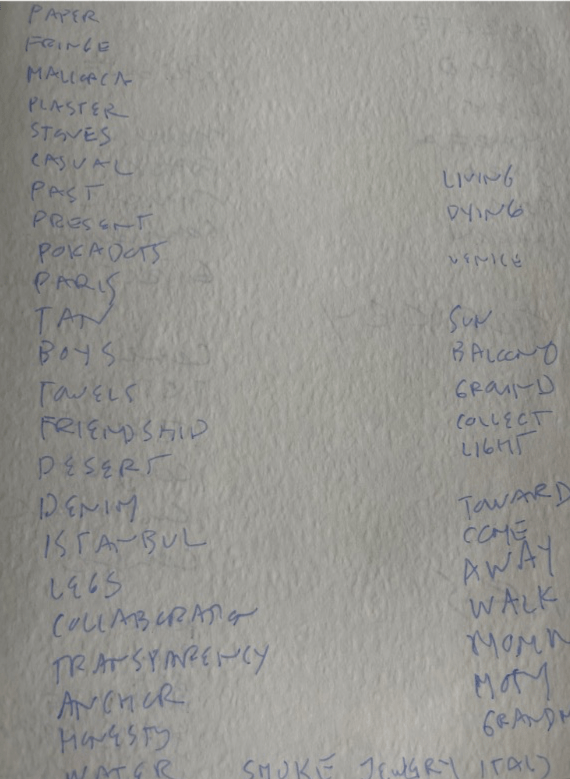 PAPER
FRINGE
MALLORCA
PLASTER
STONES
CASUAL
PAST
PRESENT
POKADOTS
PARIS
TAN
BOYS
TOWELS
FRIENDSHIP
DESERT
DENIM
ISTANBUL
LEGS
COLLABORATION
TRANSPARENCY
ANCHOR
HONESTY
WATER SMOKE JEWLERY ITALY
LIVING
DYING
VENICE
SUN
GROUND
COLLECT
LIGHT
TOWARD
COME
AWAY
WALK
MOM